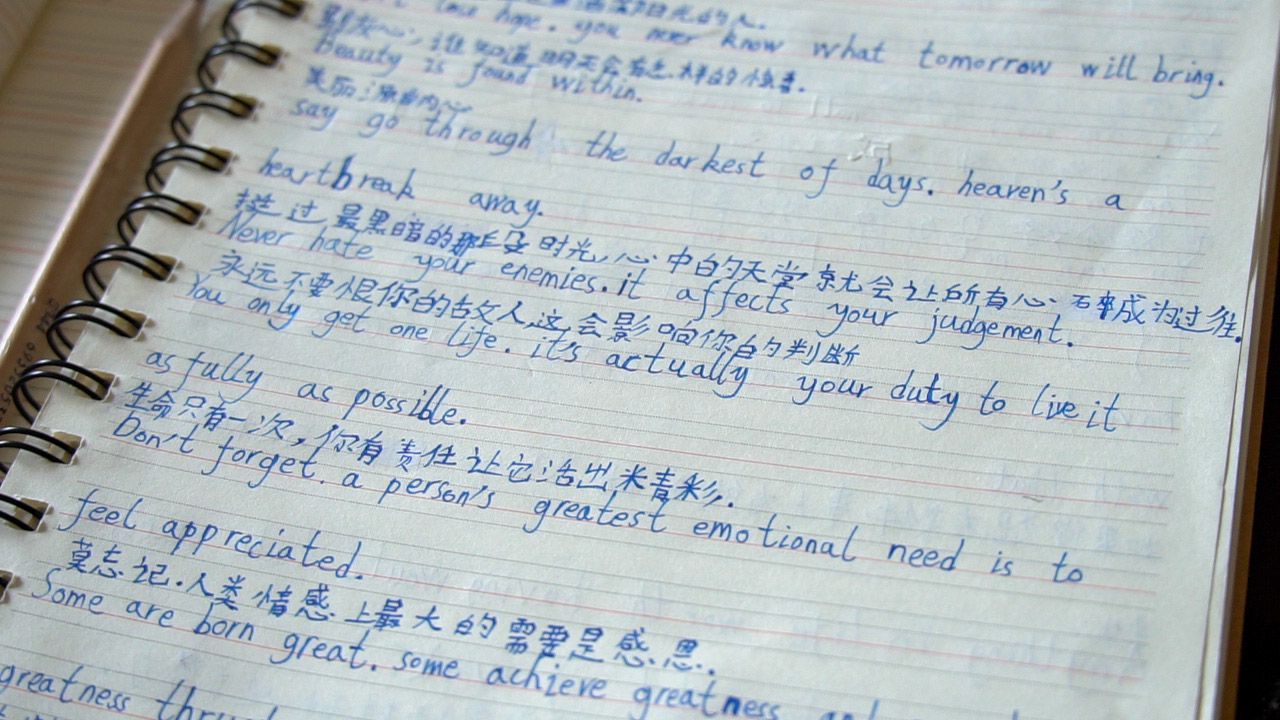 lose hope. you never know what tomorrow will bring.
谁知道明天会有怎样的惊喜.
Beauty is found within.
美丽源自内心
say go through the darkest of days. heaven's a
heartbreak away.
挨过最黑暗的那段时光,心中的天堂就会让所有心碎成为过往.
Never hate your enemies. it affects your judgement.
永远不要恨你的敌人,这会影响你的判断
You only get one life. it's actually your duty to live it
as fully as possible.
生命只有一次,你有责任让它活出精彩.
Don't forget. a person's greatest emotional need is to
feel appreciated.
莫忘记.人类情感上最大的需要是感恩.
Some are born great. some achieve greatness and
greatness